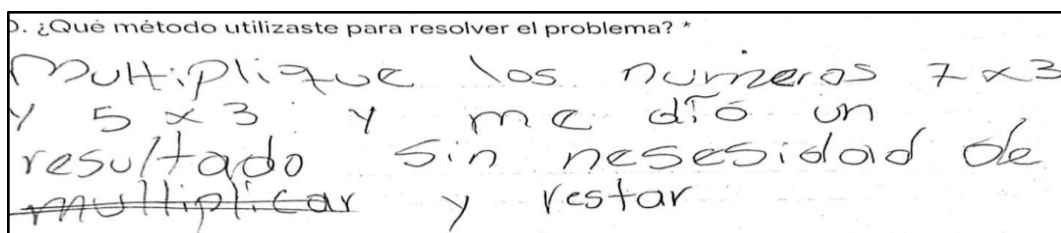 . ¿Qué método utilizaste para resolver el problema? *
Multiplique los numeros 7 x 3
y 5 x 3 y me dió un
resultado sin nesesidad de
multiplicar y restar